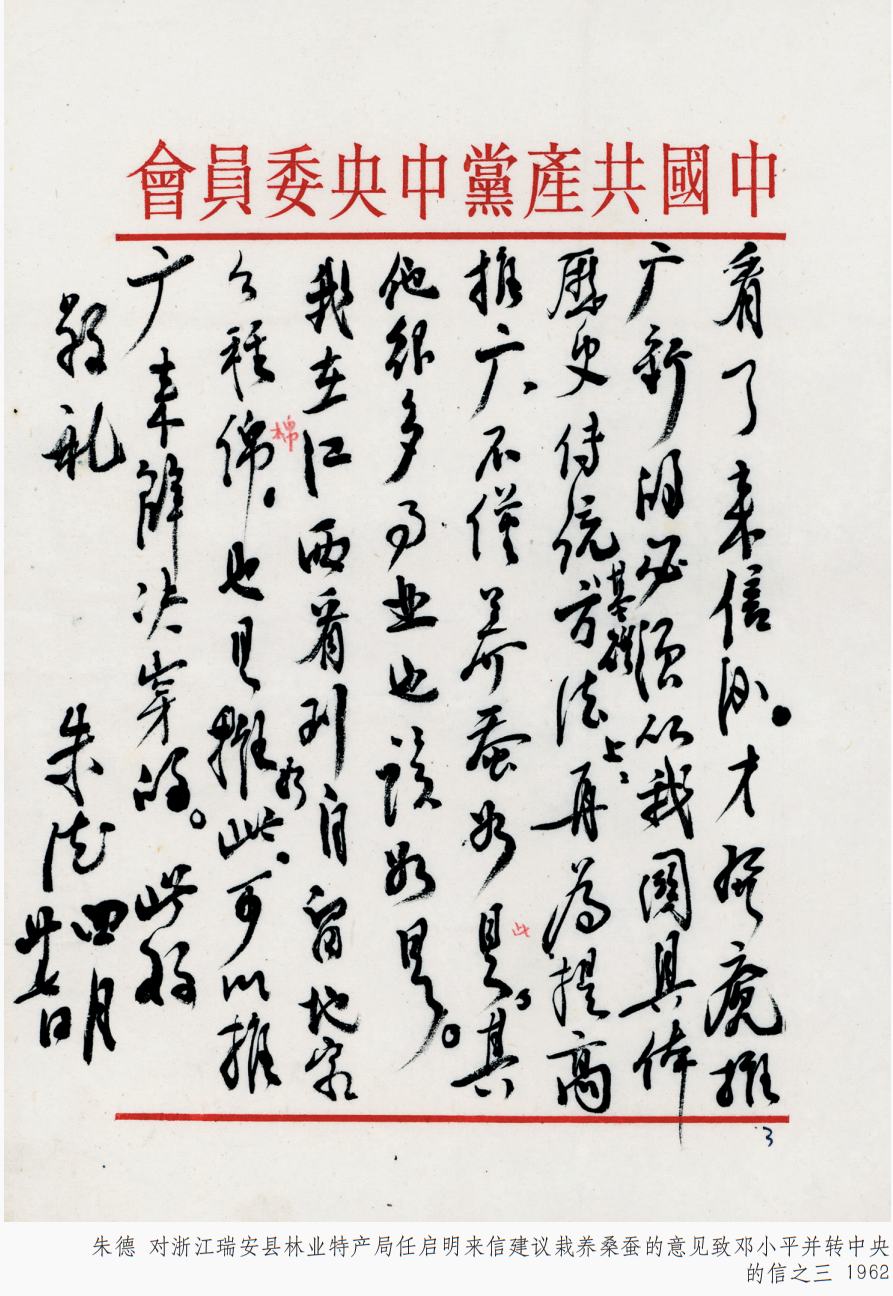 中國共產黨中央委員會
看了来信后。才發覚推
广新的必须以我國具体
歷史传统方法基礎上、再為提高
推广、不僅养蚕如是此，其
他很多事业也该如是。
我在江西看到自留地家
々種綿棉。也是推如此。可以推
广来解决穿的。此致
敬礼
朱德 四月
廿七日
3
朱德 对浙江瑞安县林业特产局任启明来信建议栽养桑蚕的意见致邓小平并转中央
的信之三 1962